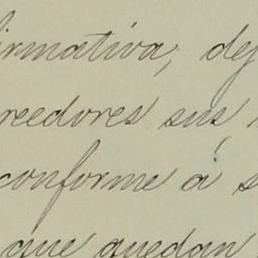 irmativa, dej
reedores sus,
conforme á s
que quedan